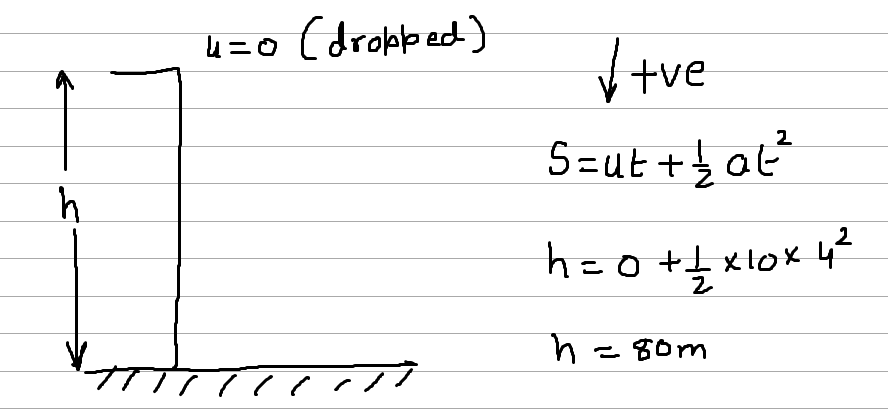 u=0 (dropped)
↓+ve
S=ut+½at²
h
h=0+½×10×4²
h=80m